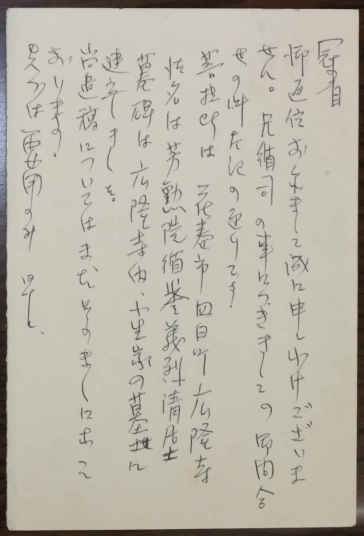 冠省
御返信おくれまして誠に申しわけございま
せん。兄循司の事につきましての御問合
せの件左記の通りです。
菩提所は 花巻市四日町広隆寺
法名は 芳勲院循誉義烈清居士
墓碑は広隆寺内、小生家の墓地に
建立しました。
尚遺稿についてはまだそのまゝに相成って
おります。
先づは要用のみ 早々